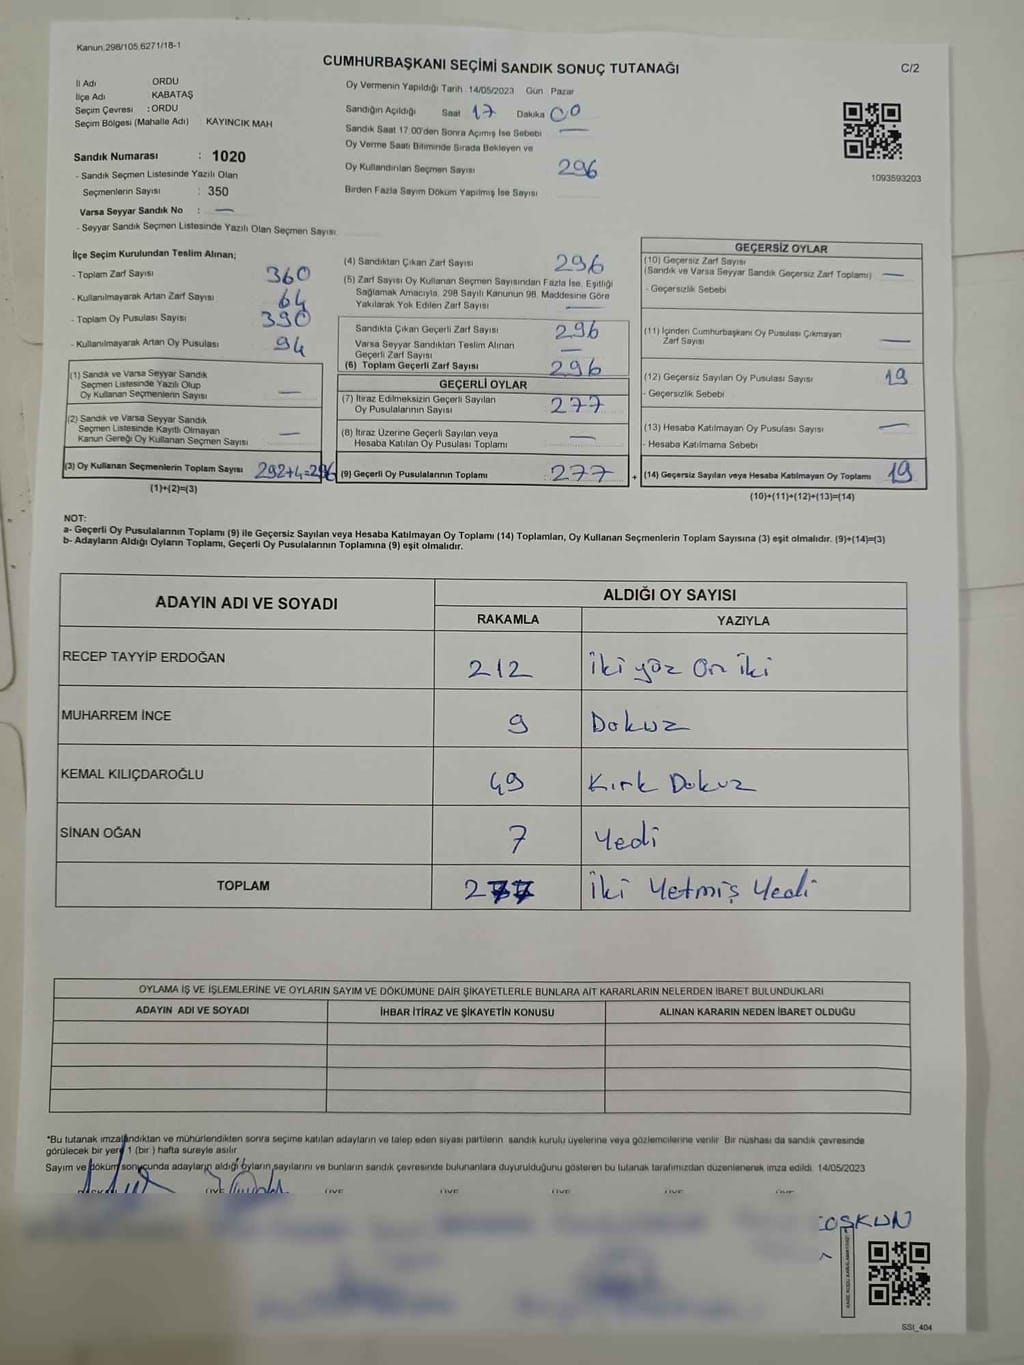 Kanun.298/105,6271/18-1
CUMHURBAŞKANI SEÇİMİ SANDIK SONUÇ TUTANAĞI
C/2
İl Adı : ORDU
İlçe Adı : KABATAŞ
Seçim Çevresi : ORDU
Seçim Bölgesi (Mahalle Adı) : KAYINCIK MAH
Sandık Numarası : 1020
- Sandık Seçmen Listesinde Yazılı Olan
Seçmenlerin Sayısı : 350
Varsa Seyyar Sandık No : —
- Seyyar Sandık Seçmen Listesinde Yazılı Olan Seçmen Sayısı
Oy Vermenin Yapıldığı Tarih 14/05/2023 Gün Pazar
Sandığın Açıldığı Saat 17 Dakika 00
Sandık Saat 17 00'den Sonra Açımış İse Sebebi —
Oy Verme Saati Bitiminde Sırada Bekleyen ve
Oy Kullandırılan Seçmen Sayısı 296
Birden Fazla Sayım Döküm Yapılmış İse Sayısı
1093593203
İlçe Seçim Kurulundan Teslim Alınan;
- Toplam Zarf Sayısı 360
- Kullanılmayarak Artan Zarf Sayısı 64
- Toplam Oy Pusulası Sayısı 390
- Kullanılmayarak Artan Oy Pusulası 94
(1) Sandık ve Varsa Seyyar Sandık
Seçmen Listesinde Yazılı Olup
Oy Kullanan Seçmenlerin Sayısı —
(2) Sandık ve Varsa Seyyar Sandık
Seçmen Listesinde Kayıtlı Olmayan
Kanun Gereği Oy Kullanan Seçmen Sayısı —
(3) Oy Kullanan Seçmenlerin Toplam Sayısı 292+4=296
(1)+(2)=(3)
(4) Sandıktan Çıkan Zarf Sayısı 296
(5) Zarf Sayısı Oy Kullanan Seçmen Sayısından Fazla İse, Eşitliği
Sağlamak Amacıyla, 298 Sayılı Kanunun 98. Maddesine Göre
Yakılarak Yok Edilen Zarf Sayısı —
Sandıkta Çıkan Geçerli Zarf Sayısı 296
Varsa Seyyar Sandıktan Teslim Alınan
Geçerli Zarf Sayısı —
(6) Toplam Geçerli Zarf Sayısı 296
GEÇERLİ OYLAR
(7) İtiraz Edilmeksizin Geçerli Sayılan
Oy Pusulalarının Sayısı 277
(8) İtiraz Üzerine Geçerli Sayılan veya
Hesaba Katılan Oy Pusulası Toplamı —
(9) Geçerli Oy Pusulalarının Toplamı 277
+
GEÇERSİZ OYLAR
(10) Geçersiz Zarf Sayısı
(Sandık ve Varsa Seyyar Sandık Geçersiz Zarf Toplamı) —
- Geçersizlik Sebebi
(11) İçinden Cumhurbaşkanı Oy Pusulası Çıkmayan
Zarf Sayısı —
(12) Geçersiz Sayılan Oy Pusulası Sayısı 19
- Geçersizlik Sebebi
(13) Hesaba Katılmayan Oy Pusulası Sayısı —
- Hesaba Katılmama Sebebi
(14) Geçersiz Sayılan veya Hesaba Katılmayan Oy Toplamı 19
(10)+(11)+(12)+(13)=(14)
NOT:
a- Geçerli Oy Pusulalarının Toplamı (9) ile Geçersiz Sayılan veya Hesaba Katılmayan Oy Toplamı (14) Toplamları, Oy Kullanan Seçmenlerin Toplam Sayısına (3) eşit olmalıdır. (9)+(14)=(3)
b- Adayların Aldığı Oyların Toplamı, Geçerli Oy Pusulalarının Toplamına (9) eşit olmalıdır.
ADAYIN ADI VE SOYADI
ALDIĞI OY SAYISI
RAKAMLA YAZIYLA
RECEP TAYYİP ERDOĞAN 212 İki yüz On iki
MUHARREM İNCE 9 Dokuz
KEMAL KILIÇDAROĞLU 49 Kırk Dokuz
SİNAN OĞAN 7 Yedi
TOPLAM 277 İki Yetmiş Yedi
OYLAMA İŞ VE İŞLEMLERİNE VE OYLARIN SAYIM VE DÖKÜMÜNE DAİR ŞİKAYETLERLE BUNLARA AİT KARARLARIN NELERDEN İBARET BULUNDUKLARI
ADAYIN ADI VE SOYADI İHBAR İTİRAZ VE ŞİKAYETİN KONUSU ALINAN KARARIN NEDEN İBARET OLDUĞU
*Bu tutanak imzalandıktan ve mühürlendikten sonra seçime katılan adayların ve talep eden siyasi partilerin sandık kurulu üyelerine veya gözlemcilerine verilir Bir nüshası da sandık çevresinde
görülecek bir yere 1 (bir) hafta süreyle asılır.
Sayım ve döküm sonucunda adayların aldığı oyların sayılarını ve bunların sandık çevresinde bulunanlara duyurulduğunu gösteren bu tutanak tarafımızdan düzenlenerek imza edildi. 14/05/2023
OŞKUN
SSI_404